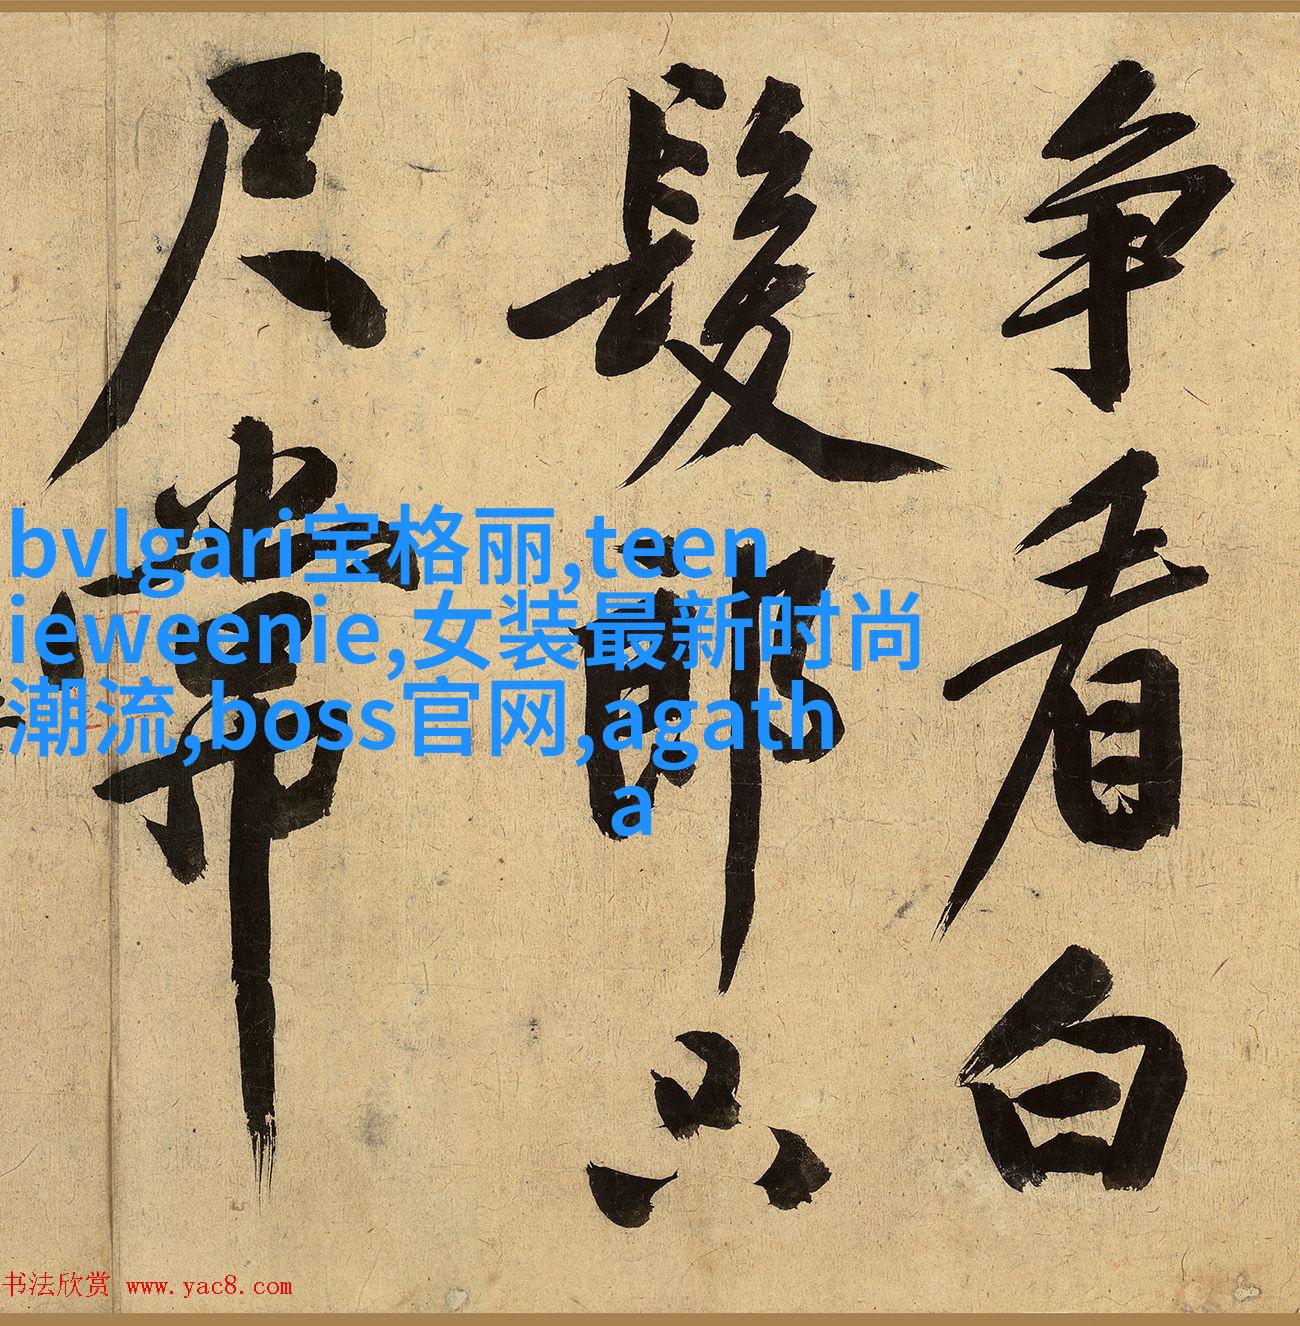 争看白
髮郎只
尺常
bvlgari宝格丽,teen
ieweenie,女装最新时尚
潮流,boss官网,agath
a
书法欣赏 www.yac8.com